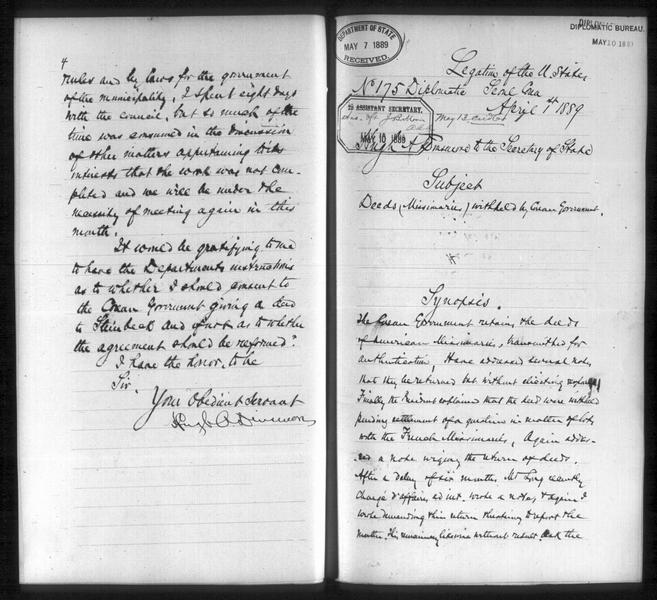 4
rules and by laws for the government
of the municipality, I spent eight days
with the council, but so much of the
time was consumed in the discussion
of other matters appertaining to its
interests that the work was not com-
pleted and we will be under the
necessity of meeting again in this
month.
It would be gratifying to me
to have the Departments instructions
as to whether I should consent to
the Corean Government giving a deed
to Steinbeck and if not as to whether
the agreement should be reformed?
I have the honor to be
Sir
Your obedient servant
Hugh A Dinsmore
DEPARTMENT OF STATE
MAY 7 1889
RECEIVED.
DIPLOMATIC BUREAU.
MAY 10 1889
Legation of the U. States
No 175 Diplomatic Seoul Corea
April 1st 1889
ASSISTANT SECRETARY,
MAY 10 1889
May 13
Hugh A Dinsmore to the Secretary of State
Subject
Deeds (Missionaries) withheld by Corean Government.
Synopsis.
The Corean Government retains the deeds
of American Missionaries, transmitted for
authentication, Have addressed several notes
that they be returned but without eliciting replies
Finally the President explained that the deeds were withheld
pending settlement of a question in matter of lots
with the French Missionaries, Again addres-
sed a note urging the return of deeds.
After a delay of six months Mr Long recently
Chargé d'affaires ad int. wrote a note, & again I
wrote demanding their return threatening to report the
matter. This remaining likewise without result. Ask the